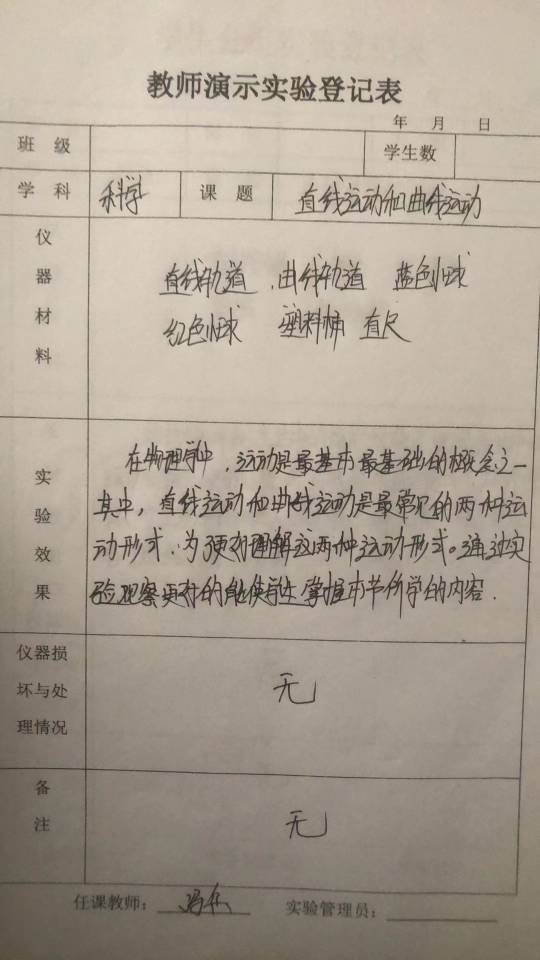 教师演示实验登记表
年 月 日
班 级 学生数
学 科 科学 课 题 直线运动和曲线运动
仪器材料
直线轨道、曲线轨道 蓝色小球
红色小球 塑料桶 直尺
实验效果
在物理学中,运动是最基本最基础的概念之一
其中,直线运动和曲线运动是最常见的两种运
动形式.为 理解这两种运动形式。通过实
验观察更好的能使学生掌握本节所学的内容.
仪器损
坏与处
理情况
无
备
注
无
任课教师: 冯 实验管理员: